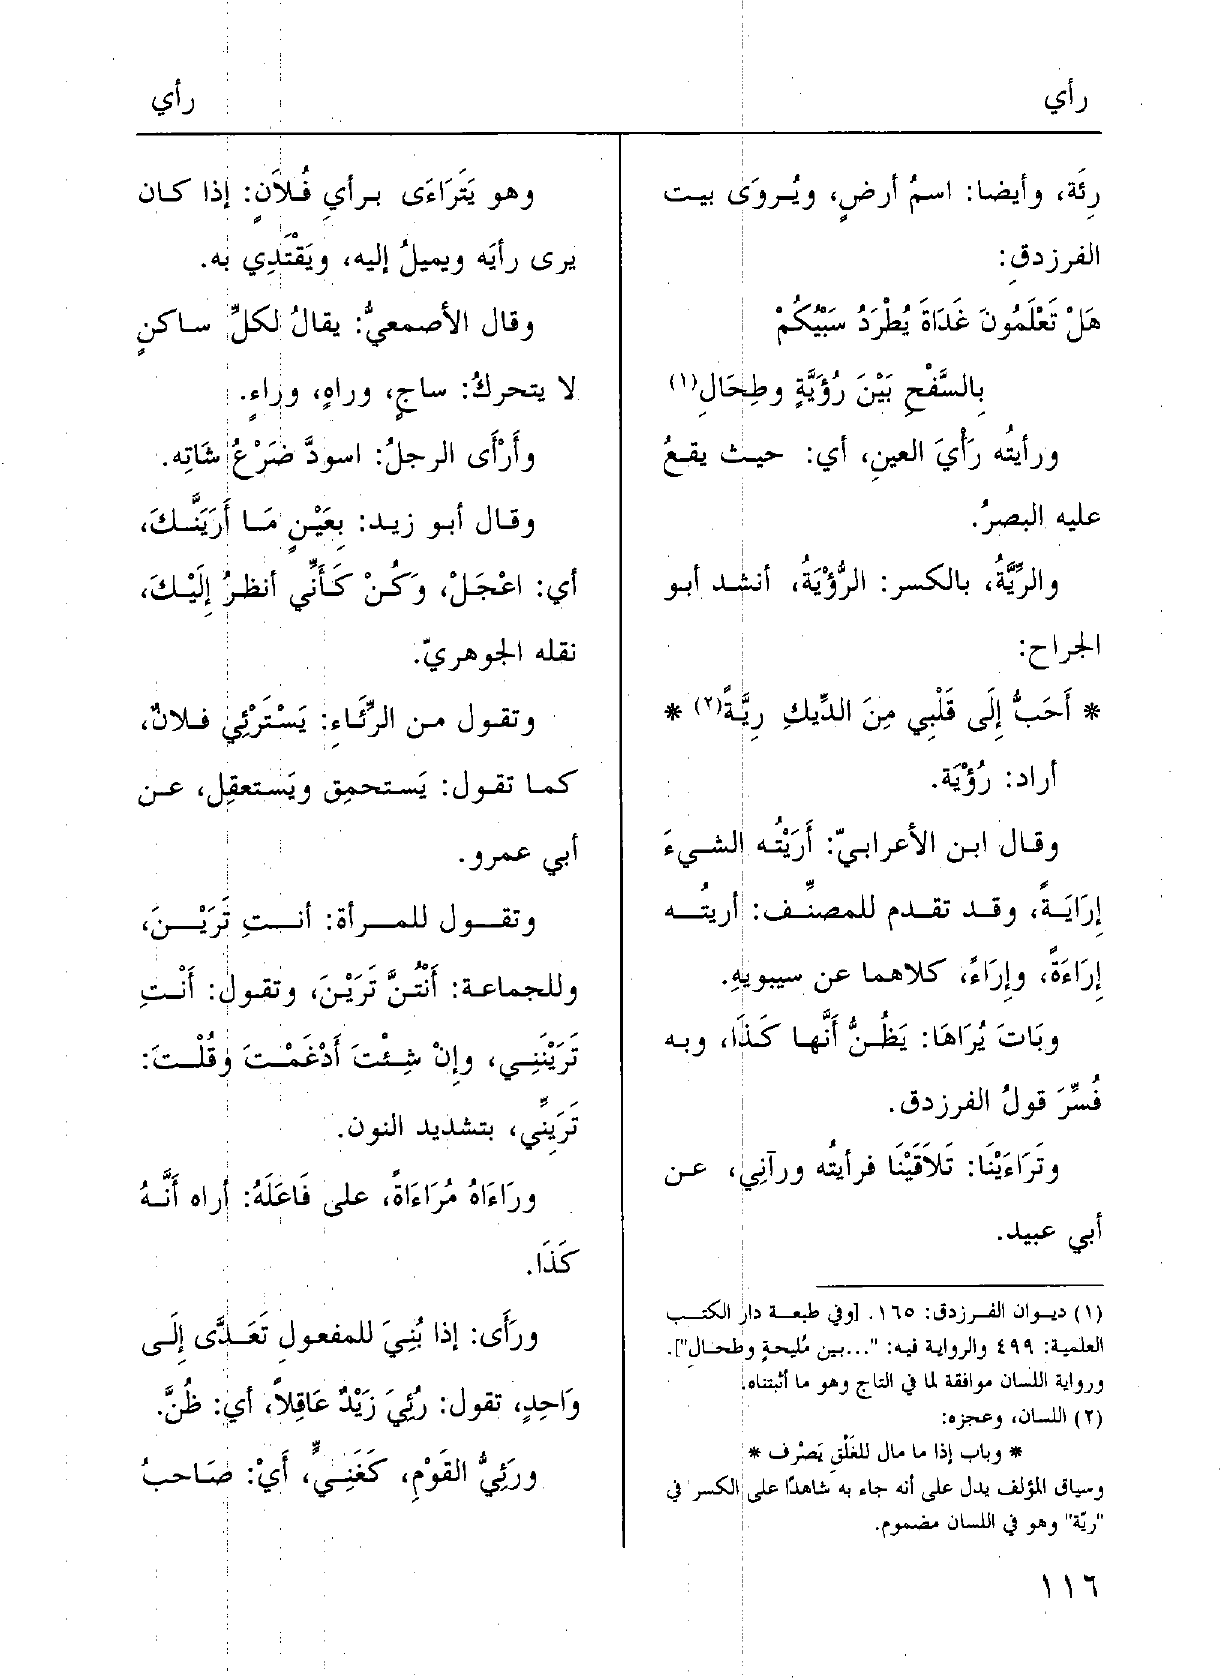 رأي
رأي
رِئَة، وأيضا: اسمُ أرضٍ، ويُروَى بيت
الفرزدقِ:
هَلْ تَعْلَمُونَ غَدَاةَ يُطْرَدُ سَبْيُكُمْ
بِالسَّفْحِ بَيْنَ رُؤَيَّةٍ وطِحَالِ(١)
ورأيتُه رَأْيَ العينِ، أي: حيث يقعُ
عليه البصرُ.
والرِّيَّةُ، بالكسر: الرُّؤْيَةُ، أنشد أبو
الجراح:
* أَحَبُّ إِلَى قَلْبِي مِنَ الدِّيكِ رِيَّةً(٢) *
أراد: رُؤْيَة.
وقال ابن الأعرابيّ: أَرَيْتُه الشيءَ
إِرَايَةً، وقد تقدم للمصنِّف: أُريتُه
إِرَاءَةً، وإِرَاءً، كلاهما عن سيبويهِ.
وبَاتَ يُرَاهَا: يَظُنُّ أَنَّها كَذَا، وبه
فُسِّرَ قولُ الفرزدق.
وتَرَاءَيْنَا: تَلاَقَيْنَا فرأيتُه ورآنِي، عن
أبي عبيد.
(١) ديوان الفرزدق: ١٦٥. [وفي طبعة دار الكتب
العلمية: ٤٩٩ والرواية فيه: "...بين مُليحةٍ وطحالِ"].
ورواية اللسان موافقة لما في التاج وهو ما أثبتناه.
(٢) اللسان، وعجزه:
* وباب إذا ما مال للغَلْقِ يَصْرْف *
وسياق المؤلف يدل على أنه جاء به شاهدًا على الكسر في
"ريّة" وهو في اللسان مضموم.
وهو يَتَرَاءَى برأيِ فُلاَنٍ: إذا كان
يرى رأيَه ويميلُ إليه، ويَقْتَدِي به.
وقال الأصمعيُّ: يقالُ لكلِّ ساكنٍ
لا يتحركُ: ساجٍ، وراهٍ، وراءٍ.
وأَرْأَى الرجلُ: اسودَّ ضَرْعُ شَاتِه.
وقال أبو زيد: بِعَيْنٍ مَا أَرَيَنَّكَ،
أي: اعْجَلْ، وَكُنْ كَأَنِّي أنظرُ إِلَيْكَ،
نقله الجوهريّ.
وتقول من الرِّئَاءِ: يَسْتَرْئِي فلانٌ،
كما تقول: يَستحمِق ويَستعقِل، عن
أبي عمرو.
وتقول للمرأة: أنتِ تَرَيْنَ،
وللجماعة: أَنْتُنَّ تَرَيْنَ، وتقول: أَنْتِ
تَرَيْنَنِي، وإنْ شِئْتَ أَدْغَمْتَ وَقُلْتَ:
تَرَيِنِّي، بتشديد النون.
ورَاءَاهُ مُرَاءَاةً، على فَاعَلَهُ: أراه أَنَّهُ
كَذَا.
ورَأَى: إذا بُنِيَ للمفعولِ تَعَدَّى إلَى
وَاحِدٍ، تقول: رُئِيَ زَيْدٌ عَاقِلاً، أي: ظُنَّ.
ورَئِيُّ القَوْمِ، كَغَنِيٍّ، أَيْ: صَاحبُ
١١٦